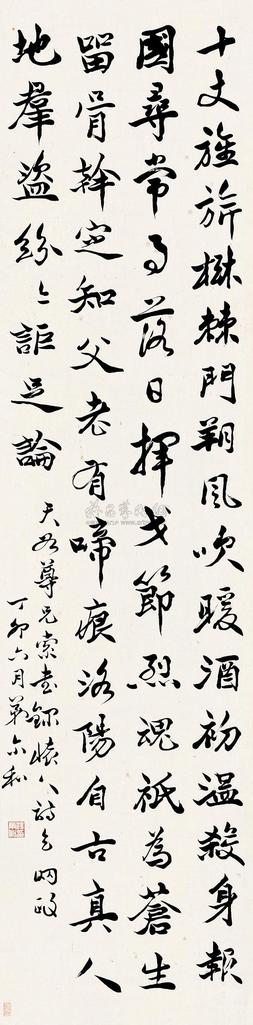 十丈旌旂棘門朔風吹暖酒初温殺身報
國尋常事落日揮戈節烈魂祇為蒼生
留骨幹定知父老有啼痕洛陽自古真人
地羣盜紛〻詎足論
尊兄索書錄懷人詩乞明政
丁卯六月弟